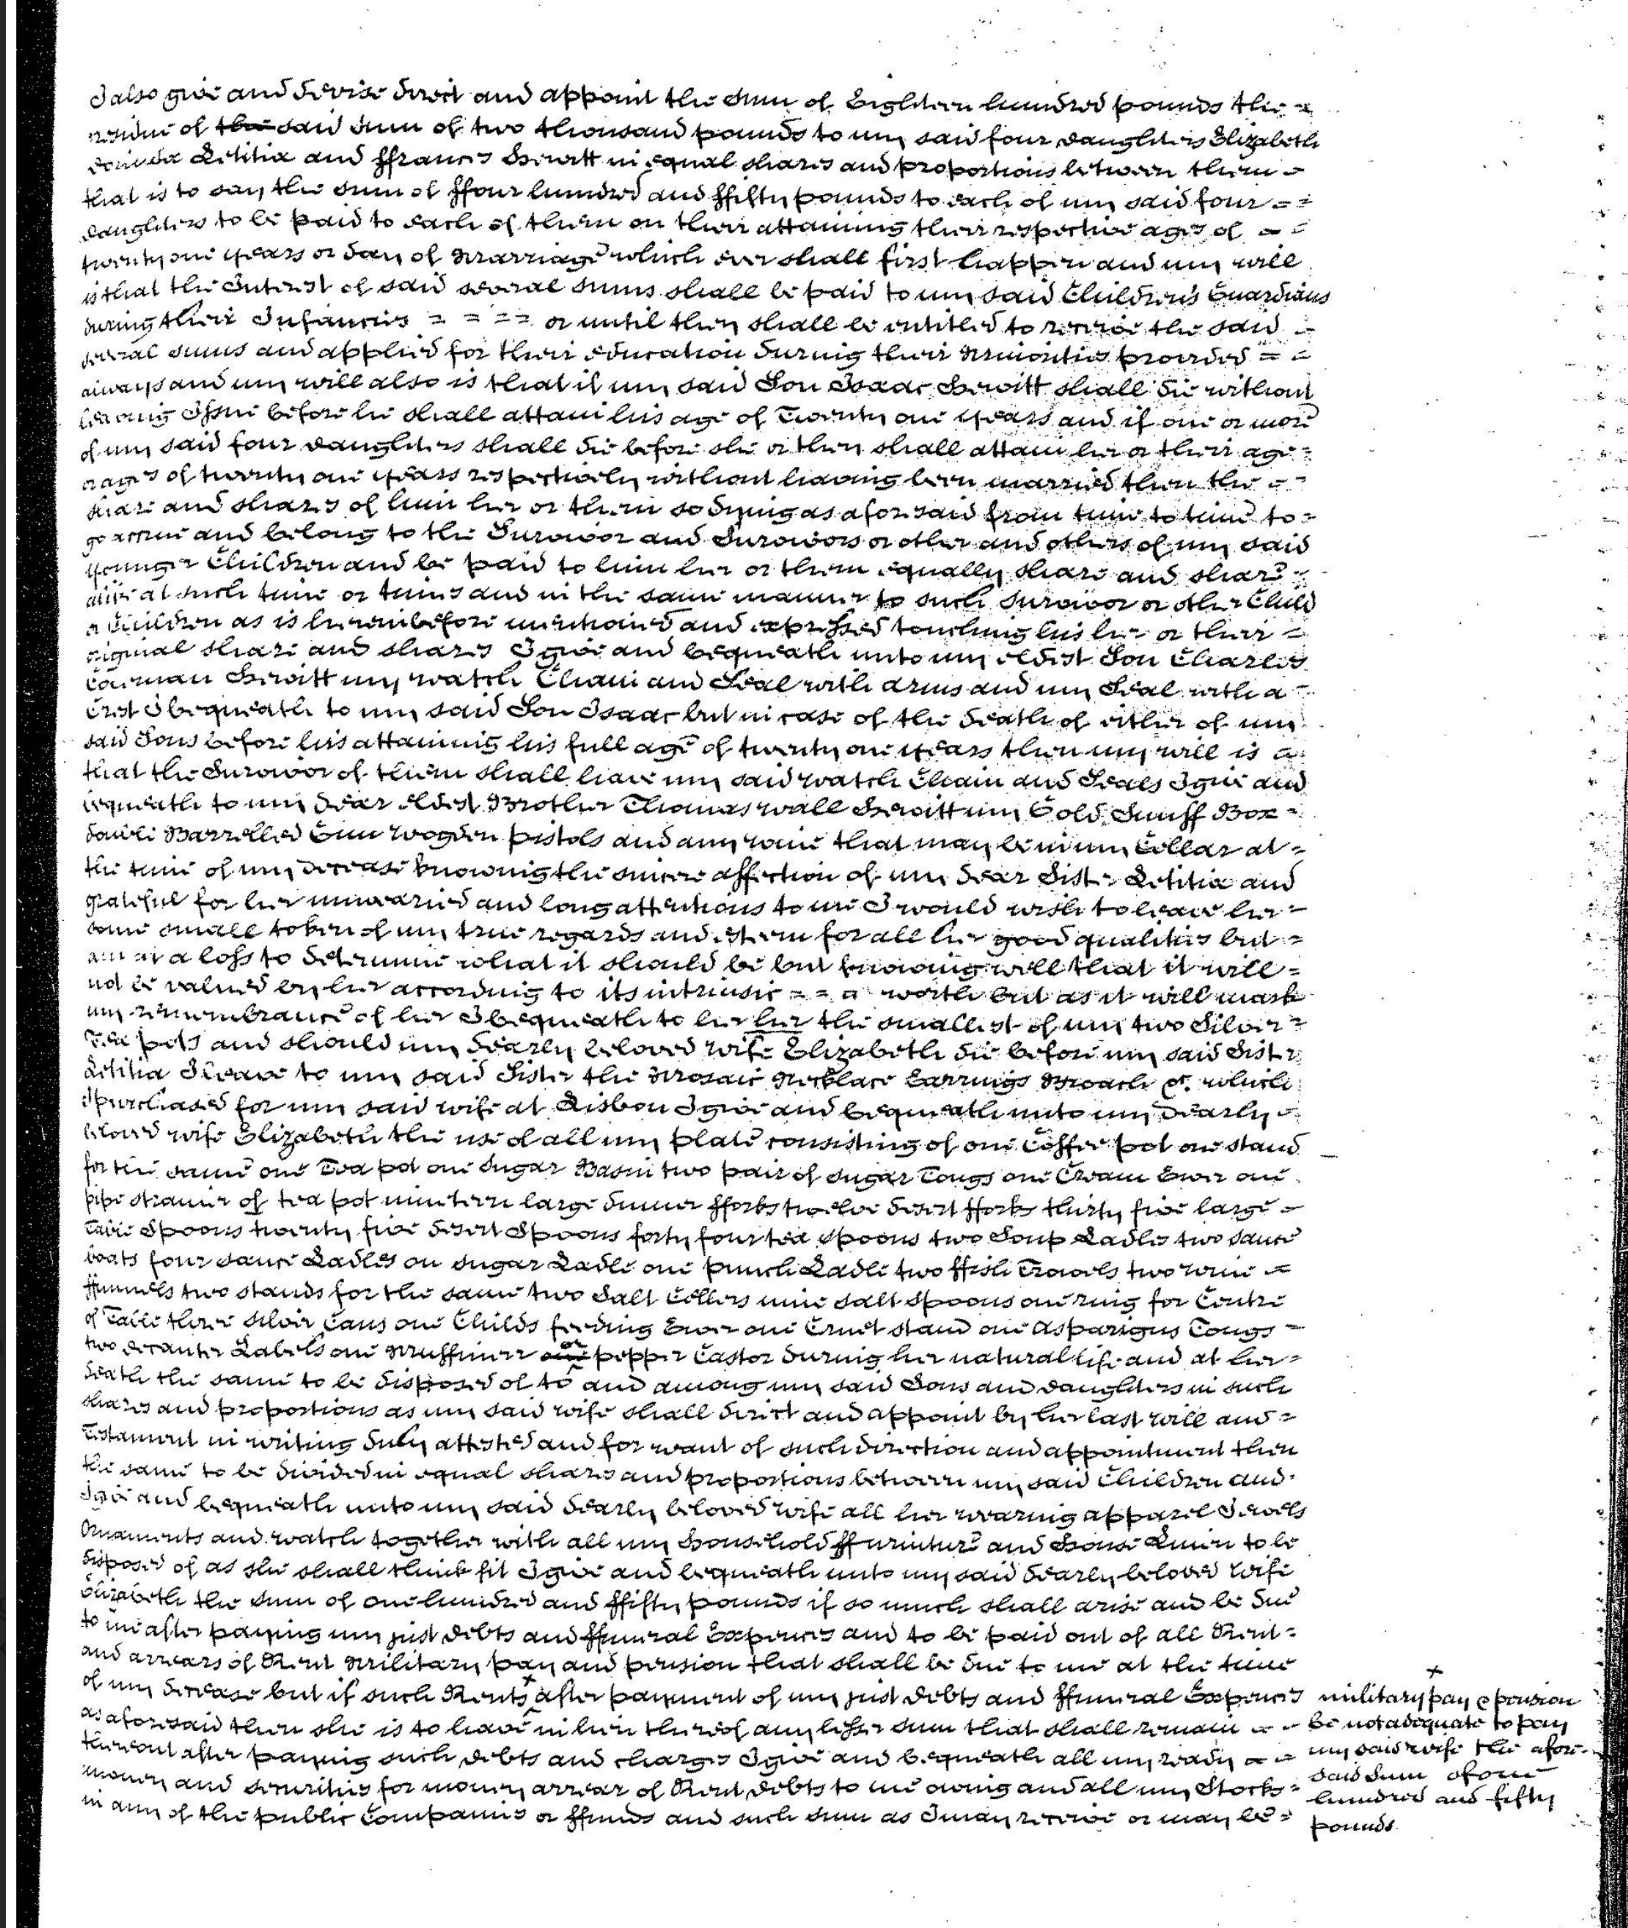 I also give and devise direct and appoint the Sum of Eighteen hundred pounds the
residue of the said Sum of two thousand pounds to my said four Daughters Elizabeth
Letitia and ffrances Hewitt in equal shares and proportions between them =
that is to say the Sum of ffour hundred and ffifty pounds to each of my said four = =
Daughters to be paid to each of them on their attaining their respective ages of = =
twenty one years or day of Marriage which ever shall first happen and my will
is that the Interest of said several Sums shall be paid to my said Children's Guardians
during their Infancies = = = = or until they shall be entitled to receive the said =
several sums and applied for their education during their Minorities provided = =
always and my will also is that if my said Son Isaac Hewitt shall die without
leaving Issue before he shall attain his age of Twenty one years and if one or more
of my said four Daughters shall die before she or they shall attain her or their age =
or ages of twenty one years respectively without having been married then the = =
share and shares of him her or them so dying as aforesaid from time to time to =
go accrue and belong to the Survivor and Survivors or other and others of my said
younger Children and be paid to him her or them equally share and share =
alike at such time or times and in the same manner to such Survivor or other Child
or Children as is hereinbefore mentioned and expressed touching his her or their =
original share and shares I give and bequeath unto my eldest Son Charles
Hewitt my watch Chain and Seal with Arms and my Seal with a =
Crest I bequeath to my said Son Isaac but in case of the death of either of my
said Sons before his attaining his full age of twenty one years then my will is =
that the Survivor of them shall have my said watch Chain and Seals I give and
bequeath to my dear eldest Brother Thomas Wall Hewitt my Gold Snuff Box =
double Barrelled Gun Wogden pistols and any wine that may be in my Cellar at =
the time of my decease knowing the sincere affection of my dear Sister Letitia and
grateful for her unwearied and long attentions to me I would wish to leave her =
some small token of my true regards and esteem for all her good qualities but =
am at a loss to determine what it should be but knowing well that it will =
not be valued by her according to its intrinsic = = = worth but as it will mark
my remembrance of her I bequeath to her her the smallest of my two Silver =
Tea pots and should my dearly beloved wife Elizabeth die before my said Sister
Letitia I leave to my said Sister the Mosaic Necklace Earrings Broach &c. which
I purchased for my said wife at Lisbon I give and bequeath unto my Dearly =
beloved wife Elizabeth the use of all my plate consisting of one Coffee pot one stand
for the same one Tea pot one Sugar Basin two pair of Sugar Tongs one Cream Ewer one
pipe strainer of tea pot nineteen large dinner fforks twelve desert fforks thirty five large =
Table Spoons twenty five desert Spoons forty four tea spoons two Soup Ladles two sauce
boats four sauce Ladles on sugar Ladle one punch Ladle two ffish Trowels two wine =
ffunnels two stands for the same two Salt Cellers nine salt spoons one ring for Centre
of Table three silver Cans one Childs feeding Ewer one Cruet stand one Asparigus Tongs =
two decanter Labels one Muffineer one pepper Castor during her natural life and at her =
death the same to be disposed of to and among my said Sons and Daughters in such
shares and proportions as my said wife shall direct and appoint by her last will and =
Testament in writing duly attested and for want of such direction and appointment then
the same to be divided in equal shares and proportions between my said Children and
I give and bequeath unto my said dearly beloved wife all her wearing apparel Jewels
Ornaments and watch together with all my Household ffurniture and House Linen to be
disposed of as she shall think fit I give and bequeath unto my said dearly beloved wife
Elizabeth the sum of one hundred and ffifty pounds if so much shall arise and be due
to me after paying my just Debts and ffuneral Expences and to be paid out of all Rent =
and arrears of Rent Military pay and pension that shall be due to me at the time
of my decease but if such Rents x after payment of my just Debts and ffuneral Expences
as aforesaid then she is to have in lieu thereof any lesser sum that shall remain = =
thereout after paying such Debts and charges I give and bequeath all my ready = =
money and securities for money arrear of Rent Debts to me owing and all my Stocks =
in any of the public Companies or ffunds and such sum as I may receive or may be =
x
military pay & pension
be not adequate to pay
my said wife the afore-
said Sum of one
hundred and fifty
pounds